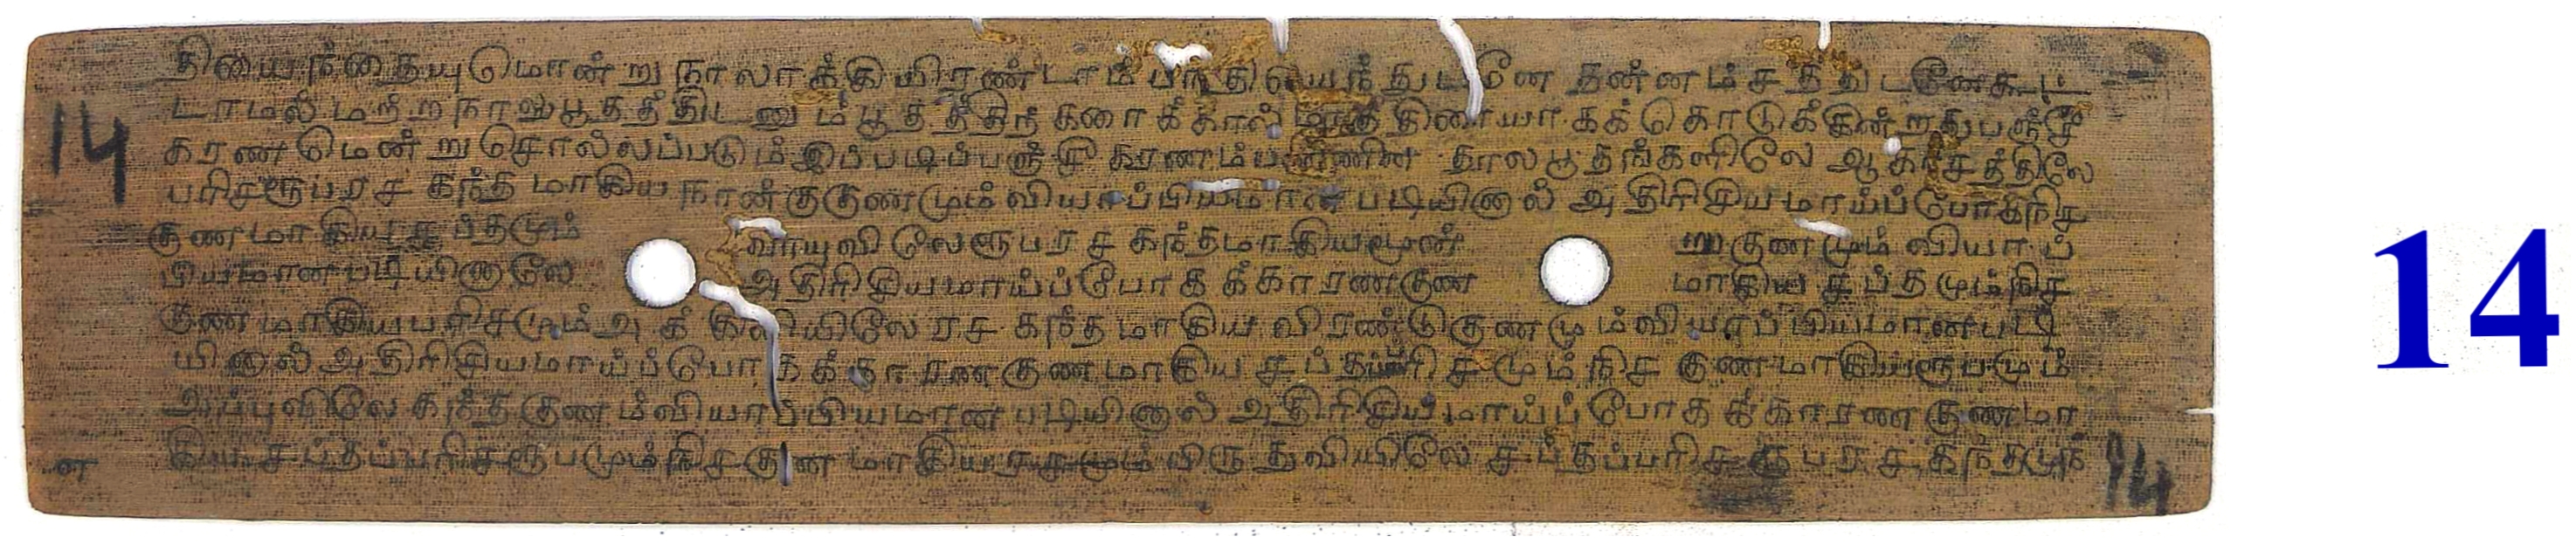 தியைந்தையுமொன்று நாலாக்கி யிரண்டாம் பாதியைந்துடனே தன்னம்சத்துடனேகூட்
14 டாமல் மற்ற நாலுபூதத்திடனும் பூதத்திற் களைக்கால் மாத்திரையாகக் கொடுக்கின்றதுபஞ்சீ
கரணமென்று சொல்லப்படும் இப்படிப்பஞ்சீகரணம்பண்ணின தூலபூதங்களிலே ஆகாசத்திலே
பரிசரூபரச கந்தமாகிய நான்குகுணமும் வியாப்பியமானபடியினால் அதிரிசியமாய்ப்போகநிச
குணமாகியசப்தமும் வாயுவிலேரூபரச கந்தமாகியமூன் றுகுணமும் வியாப்
பியமானபடியினாலே அதிரிசியமாய்ப்போகக்காரணகுண மாகிய சப்தமும்நிச
குணமாகியபரிசமும்அக்கினியிலே ரசகந்தமாகிய விரண்டுகுணமும்வியாப்பியமானபடி
யினால் அதிரிசியமாய்ப்போகக்காரணகுணமாகிய சப்தபரிசமும் நிசகுணமாகியரூபமும்
அப்புவிலே கந்தகுணம்வியாப்பியமானபடியினால் அதிரிசியமாய்ப்போகக்காரணகுணமா
ன கியசப்தப்பரிசரூபமும்நிசகுணமாகியரசமும் பிருதுவியிலே சப்தப்பரிசரூபரச கந்தமுந் 14
14